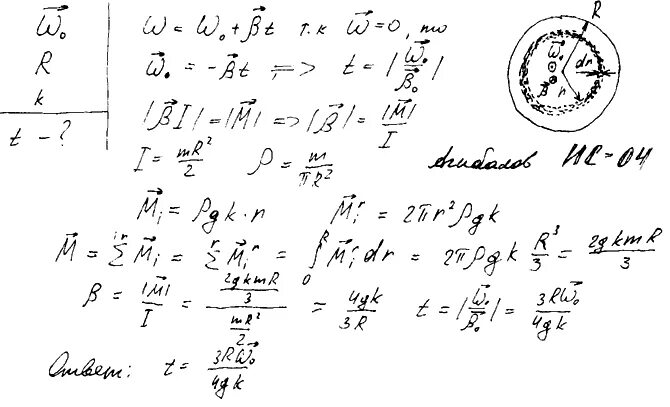 ω⃗₀
R
k
t - ?
ω⃗ = ω⃗₀ + β⃗t т.к ω⃗ = 0, то
ω⃗₀ = -β⃗t => t = |ω⃗₀/β⃗₀|
|β⃗I| = |M⃗| => |β⃗| = |M⃗|/I
I = mR²/2 ρ = m/πR²
Агибалов ИС-04
M⃗ᵢ = ρgk·r M⃗ᵢʳ = 2πr²ρgk
M⃗ = Σʳ M⃗ᵢ = Σʳ M⃗ᵢʳ = ∫₀ᴿ M⃗ᵢʳ dr = 2πρgk R³/3 = 2gkmR/3
β = |M⃗|/I = (2gkmR/3)/(mR²/2) = 4gk/3R t = |ω⃗₀/β⃗₀| = 3Rω⃗₀/4gk
Ответ: t = 3Rω⃗₀/4gk
R
ω⃗₀
dr
β⃗
r